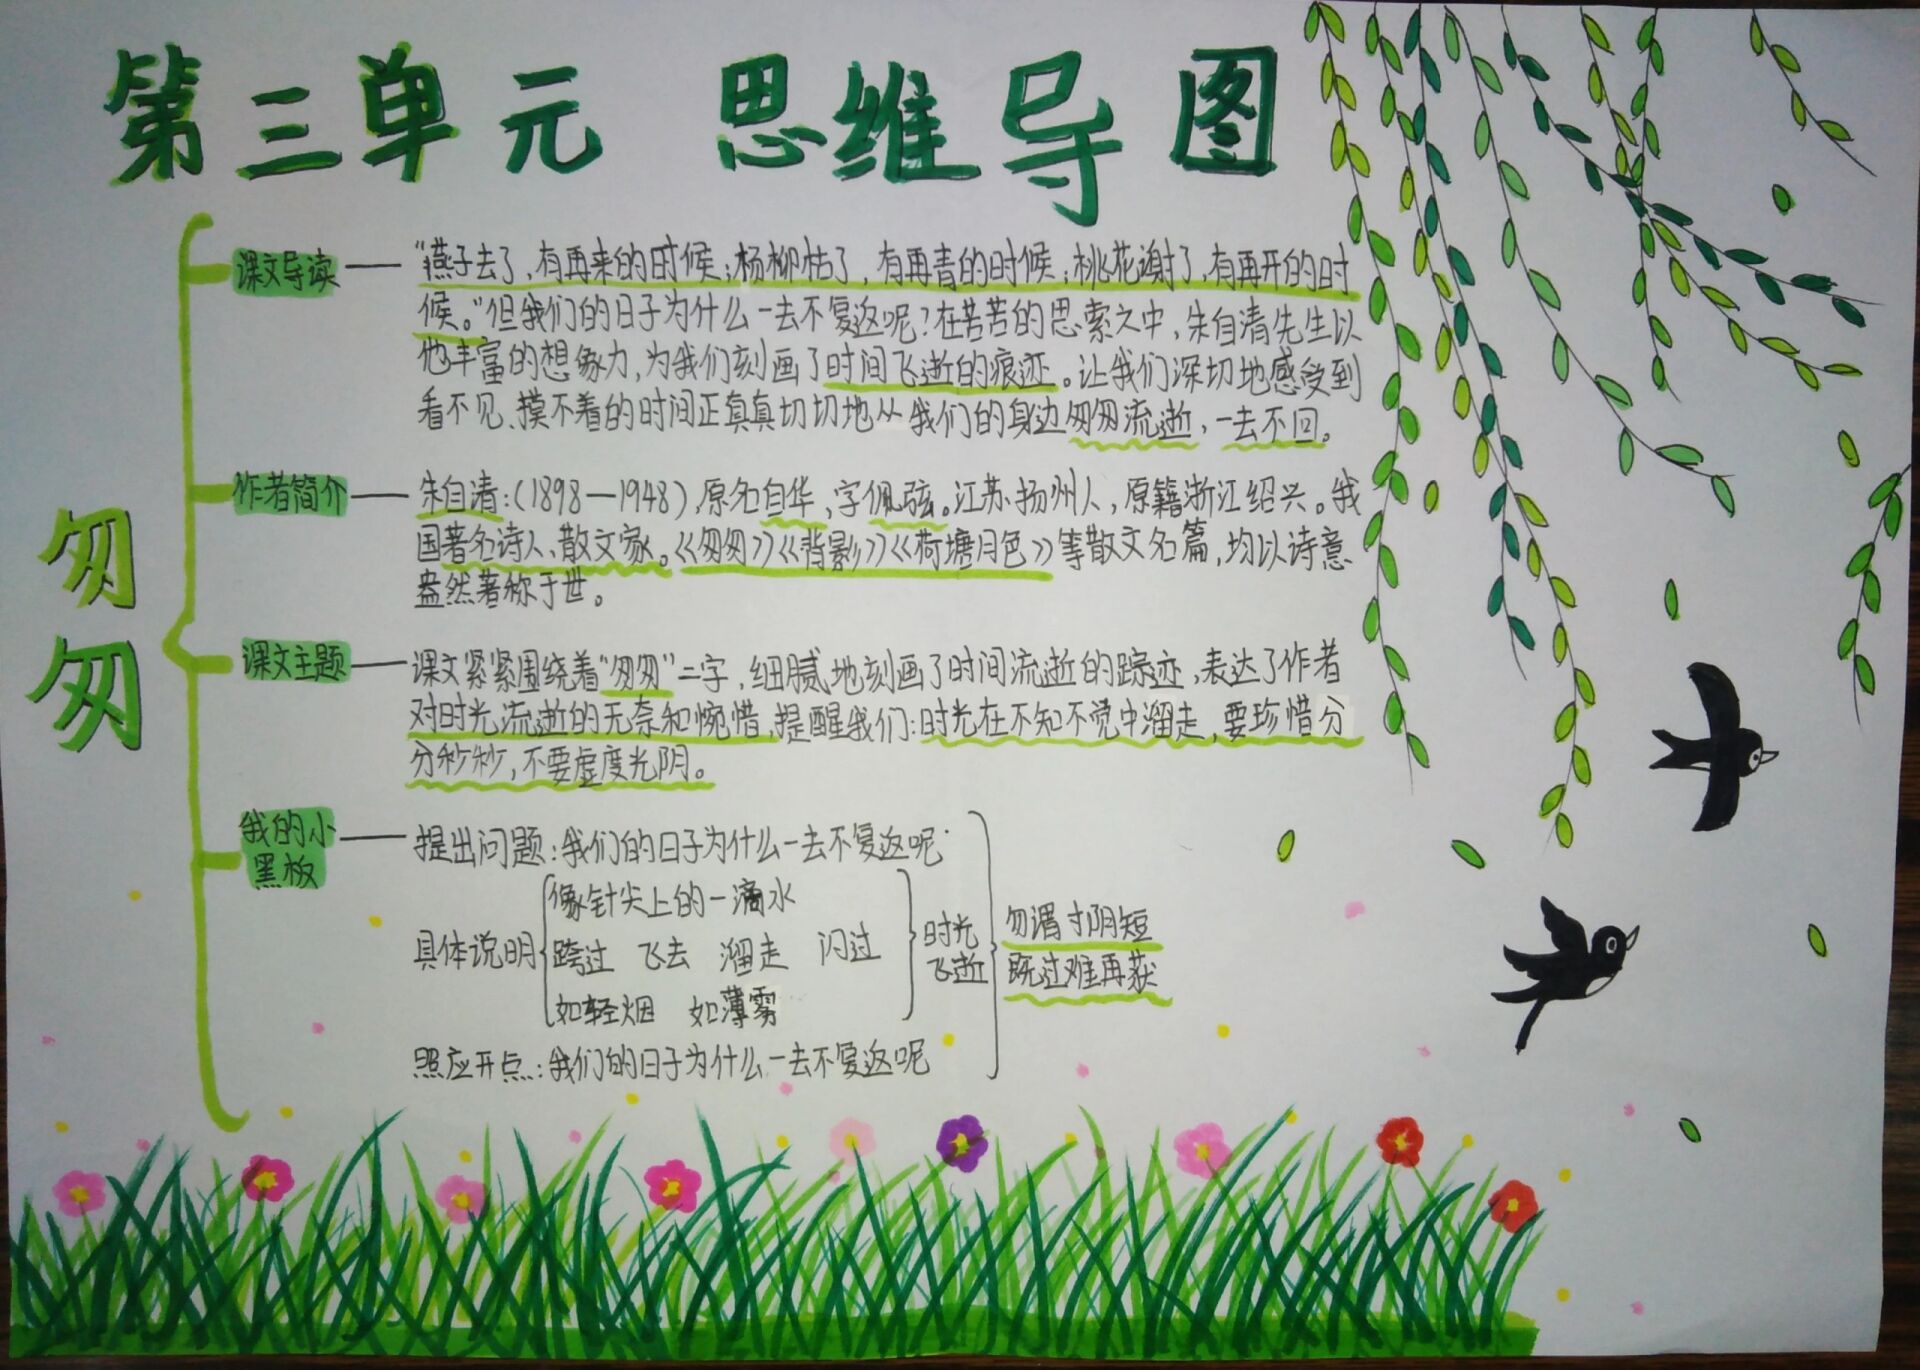 第三单元 思维导图
匆匆
课文导读
“燕子去了,有再来的时候;杨柳枯了,有再青的时候;桃花谢了,有再开的时
候。”但我们的日子为什么一去不复返呢?在苦苦的思索之中,朱自清先生以
他丰富的想象力,为我们刻画了时间飞逝的痕迹。让我们深切地感受到
看不见、摸不着的时间正真真切切地从我们的身边匆匆流逝,一去不回。
作者简介
朱自清:(1898—1948),原名自华,字佩弦。江苏扬州人,原籍浙江绍兴。我
国著名诗人、散文家。《匆匆》《背影》《荷塘月色》等散文名篇,均以诗意
盎然著称于世。
课文主题
课文紧紧围绕着“匆匆”二字,细腻地刻画了时间流逝的踪迹,表达了作者
对时光流逝的无奈和惋惜,提醒我们:时光在不知不觉中溜走,要珍惜分
分秒秒,不要虚度光阴。
我的小
黑板
提出问题:我们的日子为什么一去不复返呢
具体说明
像针尖上的一滴水
跨过 飞去 溜走 闪过
如轻烟 如薄雾
时光
飞逝
照应开点:我们的日子为什么一去不复返呢
勿谓寸阴短
既过难再获